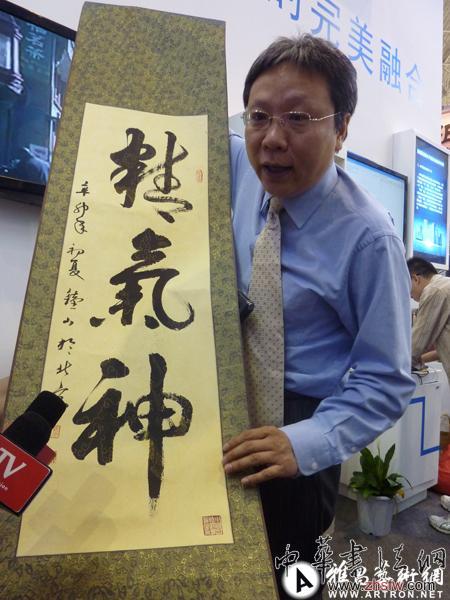 的完美融合
精氣神
辛卯年初夏鐘山於北京
TV
中華書法網
www.zhsfw.com
雅昌藝術網
WWW.ARTRON.NET